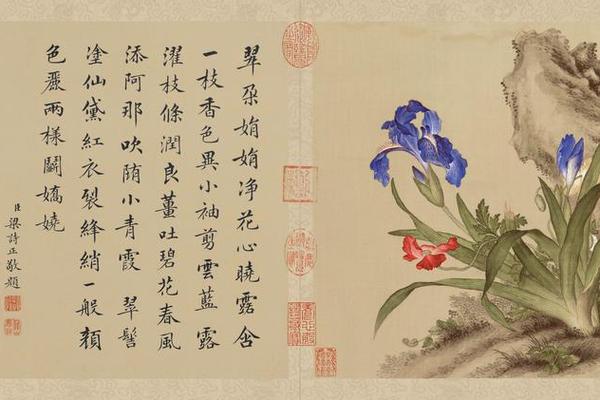 翠朵娟娟淨花心曉露含
一枝香色異小袖剪雲藍露
濯枝條潤良薑吐碧花春風
添阿那吹陏小青霞 翠髻
塗仙黛紅衣裂絳綃一般顏
色麗兩樣鬭嬌嬈
臣梁詩正敬題